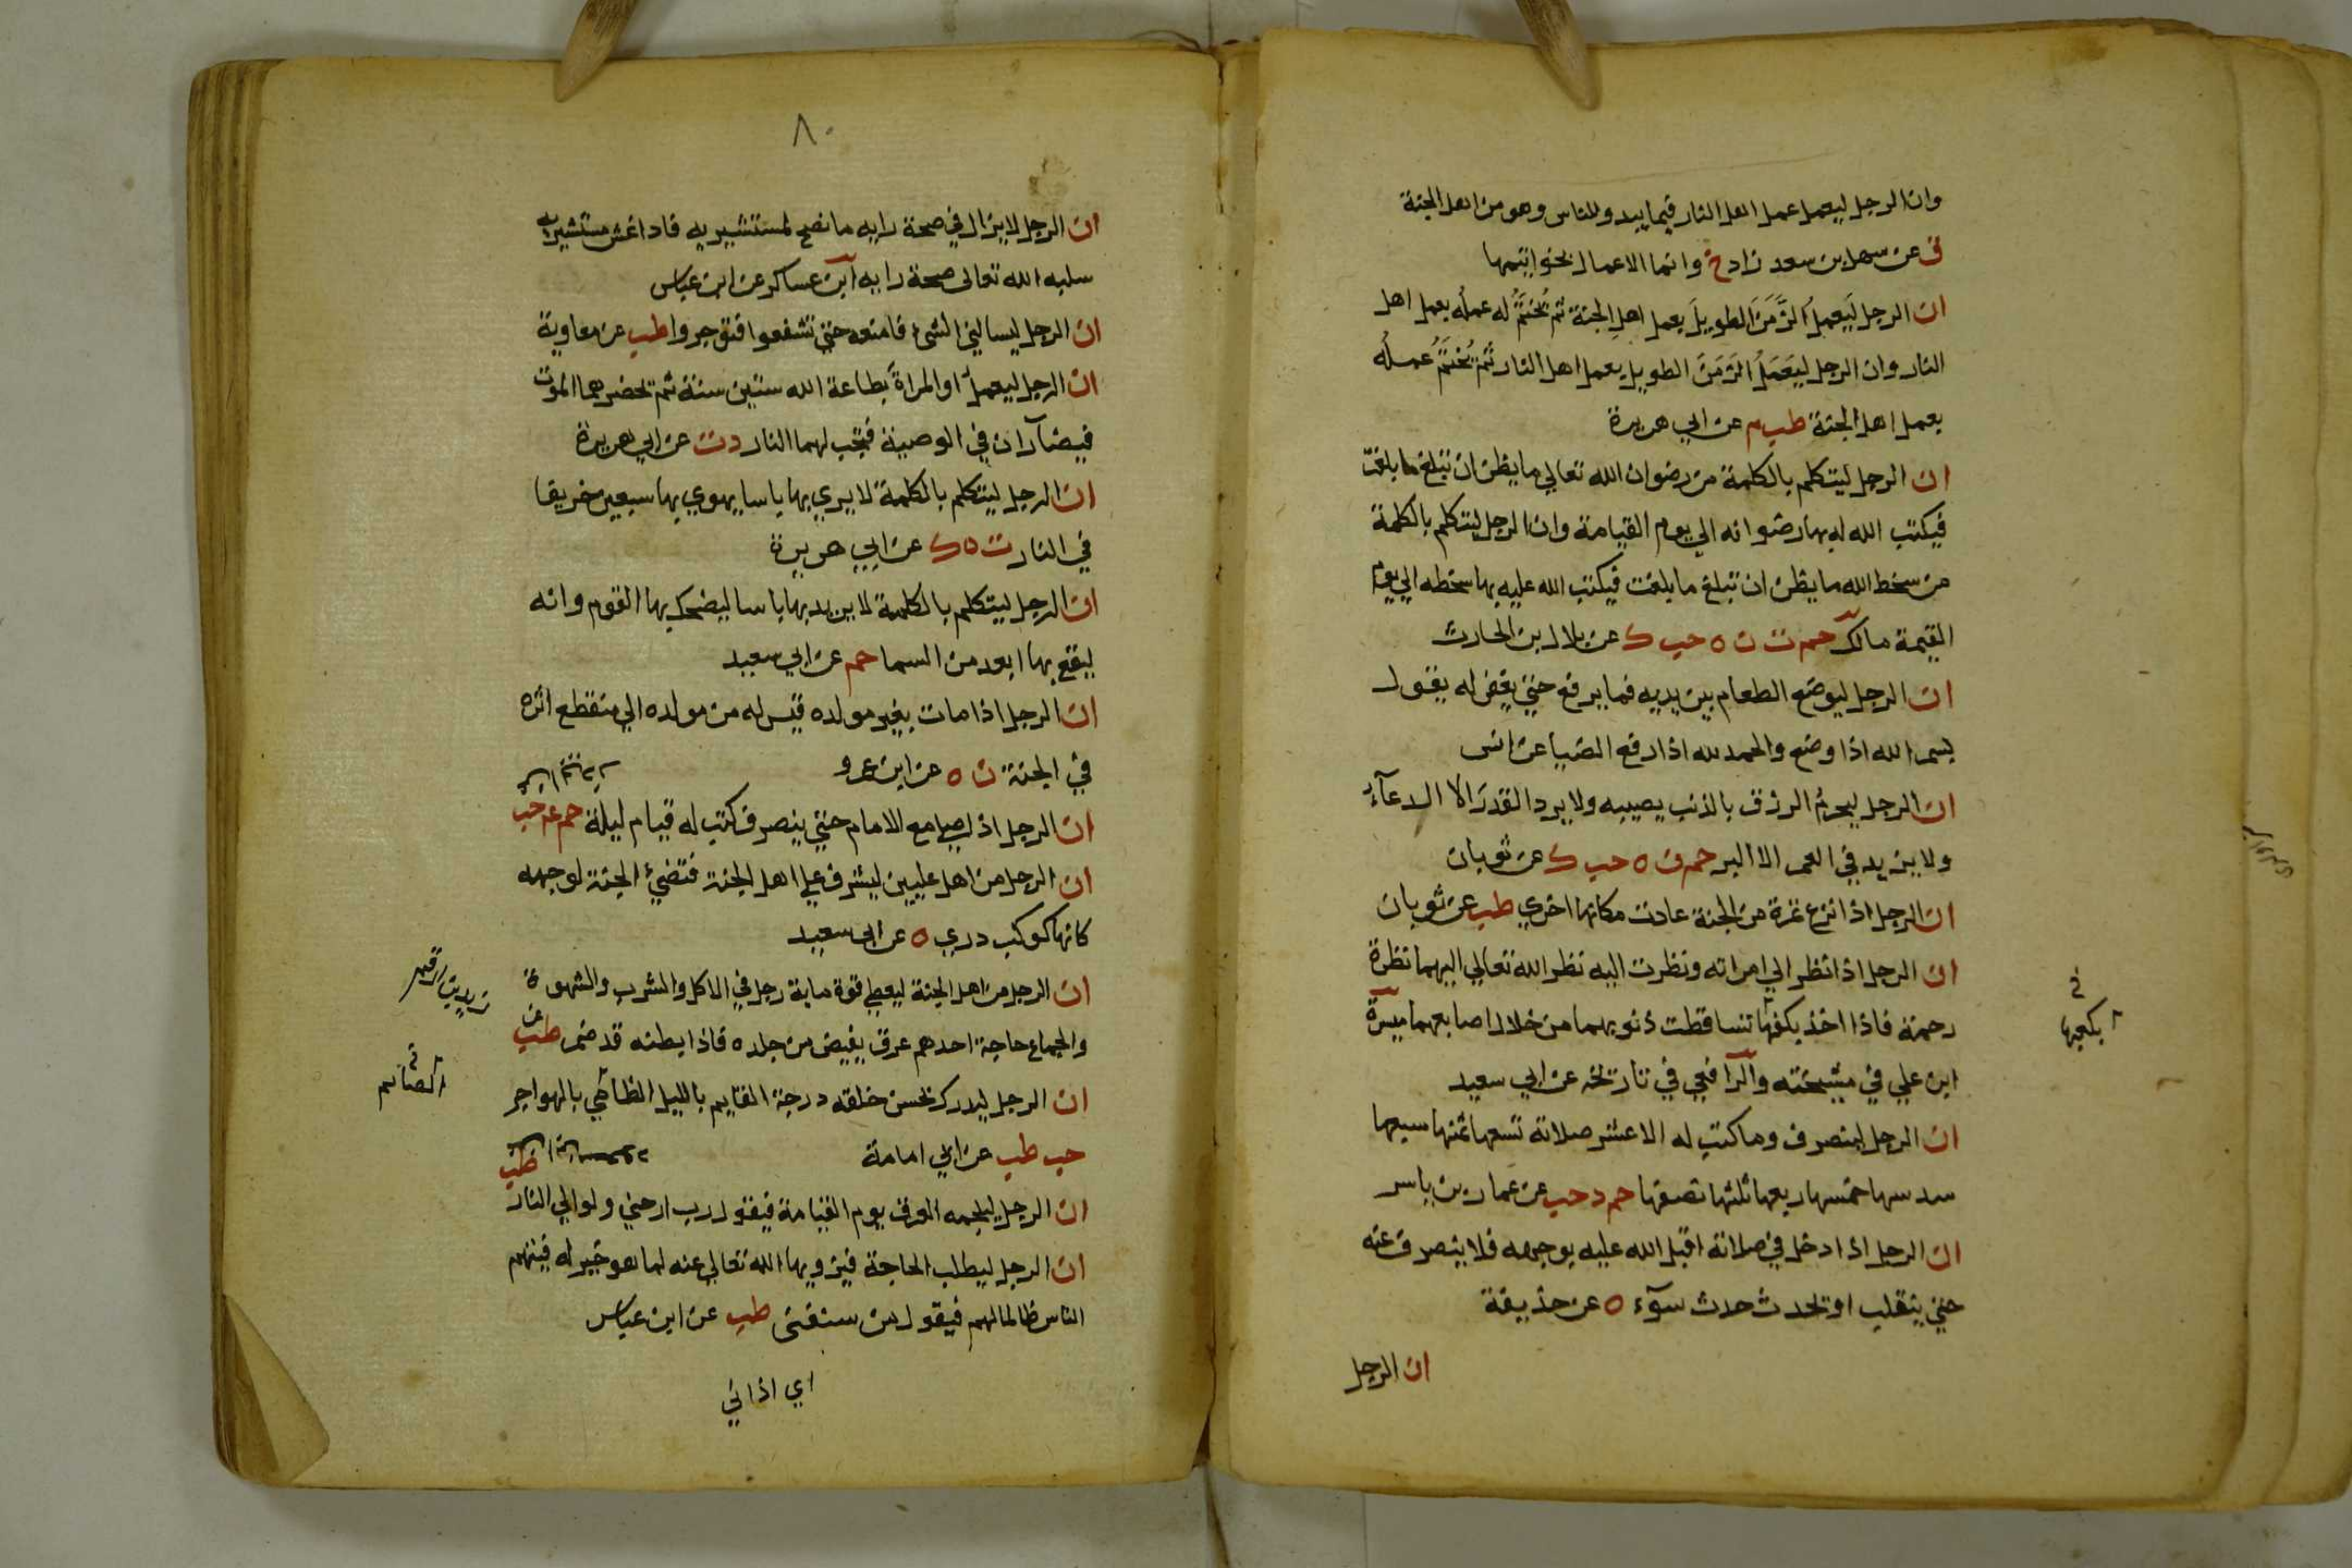 وان الرجل ليعمل عمل اهل النار فيما يبدو للناس وهو من اهل الجنة
ق عن سهل بن سعد زاد خ وانما الاعمال بخواتيمها
ان الرجل ليعمل الزمن الطويل بعمل اهل الجنة ثم يختم له عمله بعمل اهل
النار وان الرجل ليعمل الزمن الطويل بعمل اهل النار ثم يختم عمله
بعمل اهل الجنة طب م عن ابي هريرة
ان الرجل ليتكلم بالكلمة من رضوان الله تعالي ما يظن ان تبلغ ما بلغت
فيكتب الله له بها رضوانه الي يوم القيامة وان الرجل ليتكلم بالكلمة
من سخط الله ما يظن ان تبلغ ما بلغت فيكتب الله عليه بها سخطه الي يوم
القيمة مالك حم ت ن ه حب ك عن بلال بن الحارث
ان الرجل ليوضع الطعام بين يديه فما يرفع حتي يغفر له يقول
بسم الله اذا وضع والحمد لله اذا رفع الضيا عن انس
ان الرجل ليحرم الرزق بالذنب يصيبه ولا يرد القدر الا الدعآء
ولا يزيد في العمر الا البر حم ن ه حب ك عن ثوبان
ان الرجل اذا نزع ثمرة من الجنة عادت مكانها اخري طب عن ثوبان
ان الرجل اذا نظر الي امراته ونظرت اليه نظر الله تعالي اليهما نظرة
رحمة فاذا اخذ بكفها تساقطت ذنوبهما من خلال اصابعهما ميسرة
ابن علي في مشيخته والرافعي في تاريخه عن ابي سعيد
ان الرجل لينصرف وما كتب له الا عشر صلاته تسعها ثمنها سبعها
سدسها خمسها ربعها ثلثها نصفها حم د حب عن عمار بن ياسر
ان الرجل اذا دخل في صلاته اقبل الله عليه بوجهه فلا ينصرف عنه
حتي ينقلب او يحدث حدث سوآء ه عن حذيفة
ان الرجل
٨٠
ان الرجل لا يزال في صحة رايه ما نصح لمستشيريه فاذا غش مستشيريه
سلبه الله تعالي صحة رايه ابن عساكر عن ابن عباس
ان الرجل ليسالني الشئ فامنعه حتي تشفعوا فتوجروا طب عن معاوية
ان الرجل ليعمل او المراة بطاعة الله ستين سنة ثم يحضرهما الموت
فيضآران في الوصية فتجب لهما النار د ت عن ابي هريرة
ان الرجل ليتكلم بالكلمة لا يري بها باسا يهوي بها سبعين خريفا
في النار ت ه ك عن ابي هريرة
ان الرجل ليتكلم بالكلمة لا يريد بها باسا ليضحك بها القوم وانه
ليقع بها ابعد من السما حم عن ابي سعيد
ان الرجل اذا مات بغير مولده قيس له من مولده الي منقطع اثره
في الجنة ن ه عن ابن عمرو
ان الرجل اذا صلي مع الامام حتي ينصرف كتب له قيام ليلة حم عم حب
ان الرجل من اهل عليين ليشرف علي اهل الجنة فتضئ الجنة لوجهه
كانها كوكب دري ه عن ابي سعيد
ان الرجل من اهل الجنة ليعطي قوة ماية رجل في الاكل والشرب والشهوة
والجماع حاجة احدهم عرق يفيض من جلده فاذا بطنه قد ضمر طب عن
زيد بن ارقم
ان الرجل ليدرك بحسن خلقه درجة القايم بالليل الظامي بالهواجر
الصائم
حب طب عن ابي امامة
ان الرجل ليلجمه العرق يوم القيامة فيقول رب ارحني ولو الي النار
طب
ان الرجل ليطلب الحاجة فيزويها الله تعالي عنه لما هو خير له فيتهم
الناس ظالما لهم فيقول من سبعني طب عن ابن عباس
اي اذاني